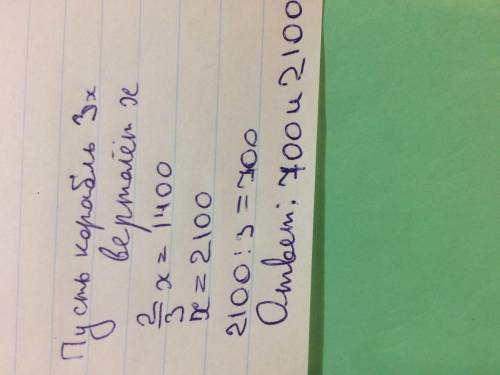 Пусть корабль 3x
вертолёт x
2/3 x = 1400
x = 2100
2100 : 3 = 700
Ответ: 700 и 2100